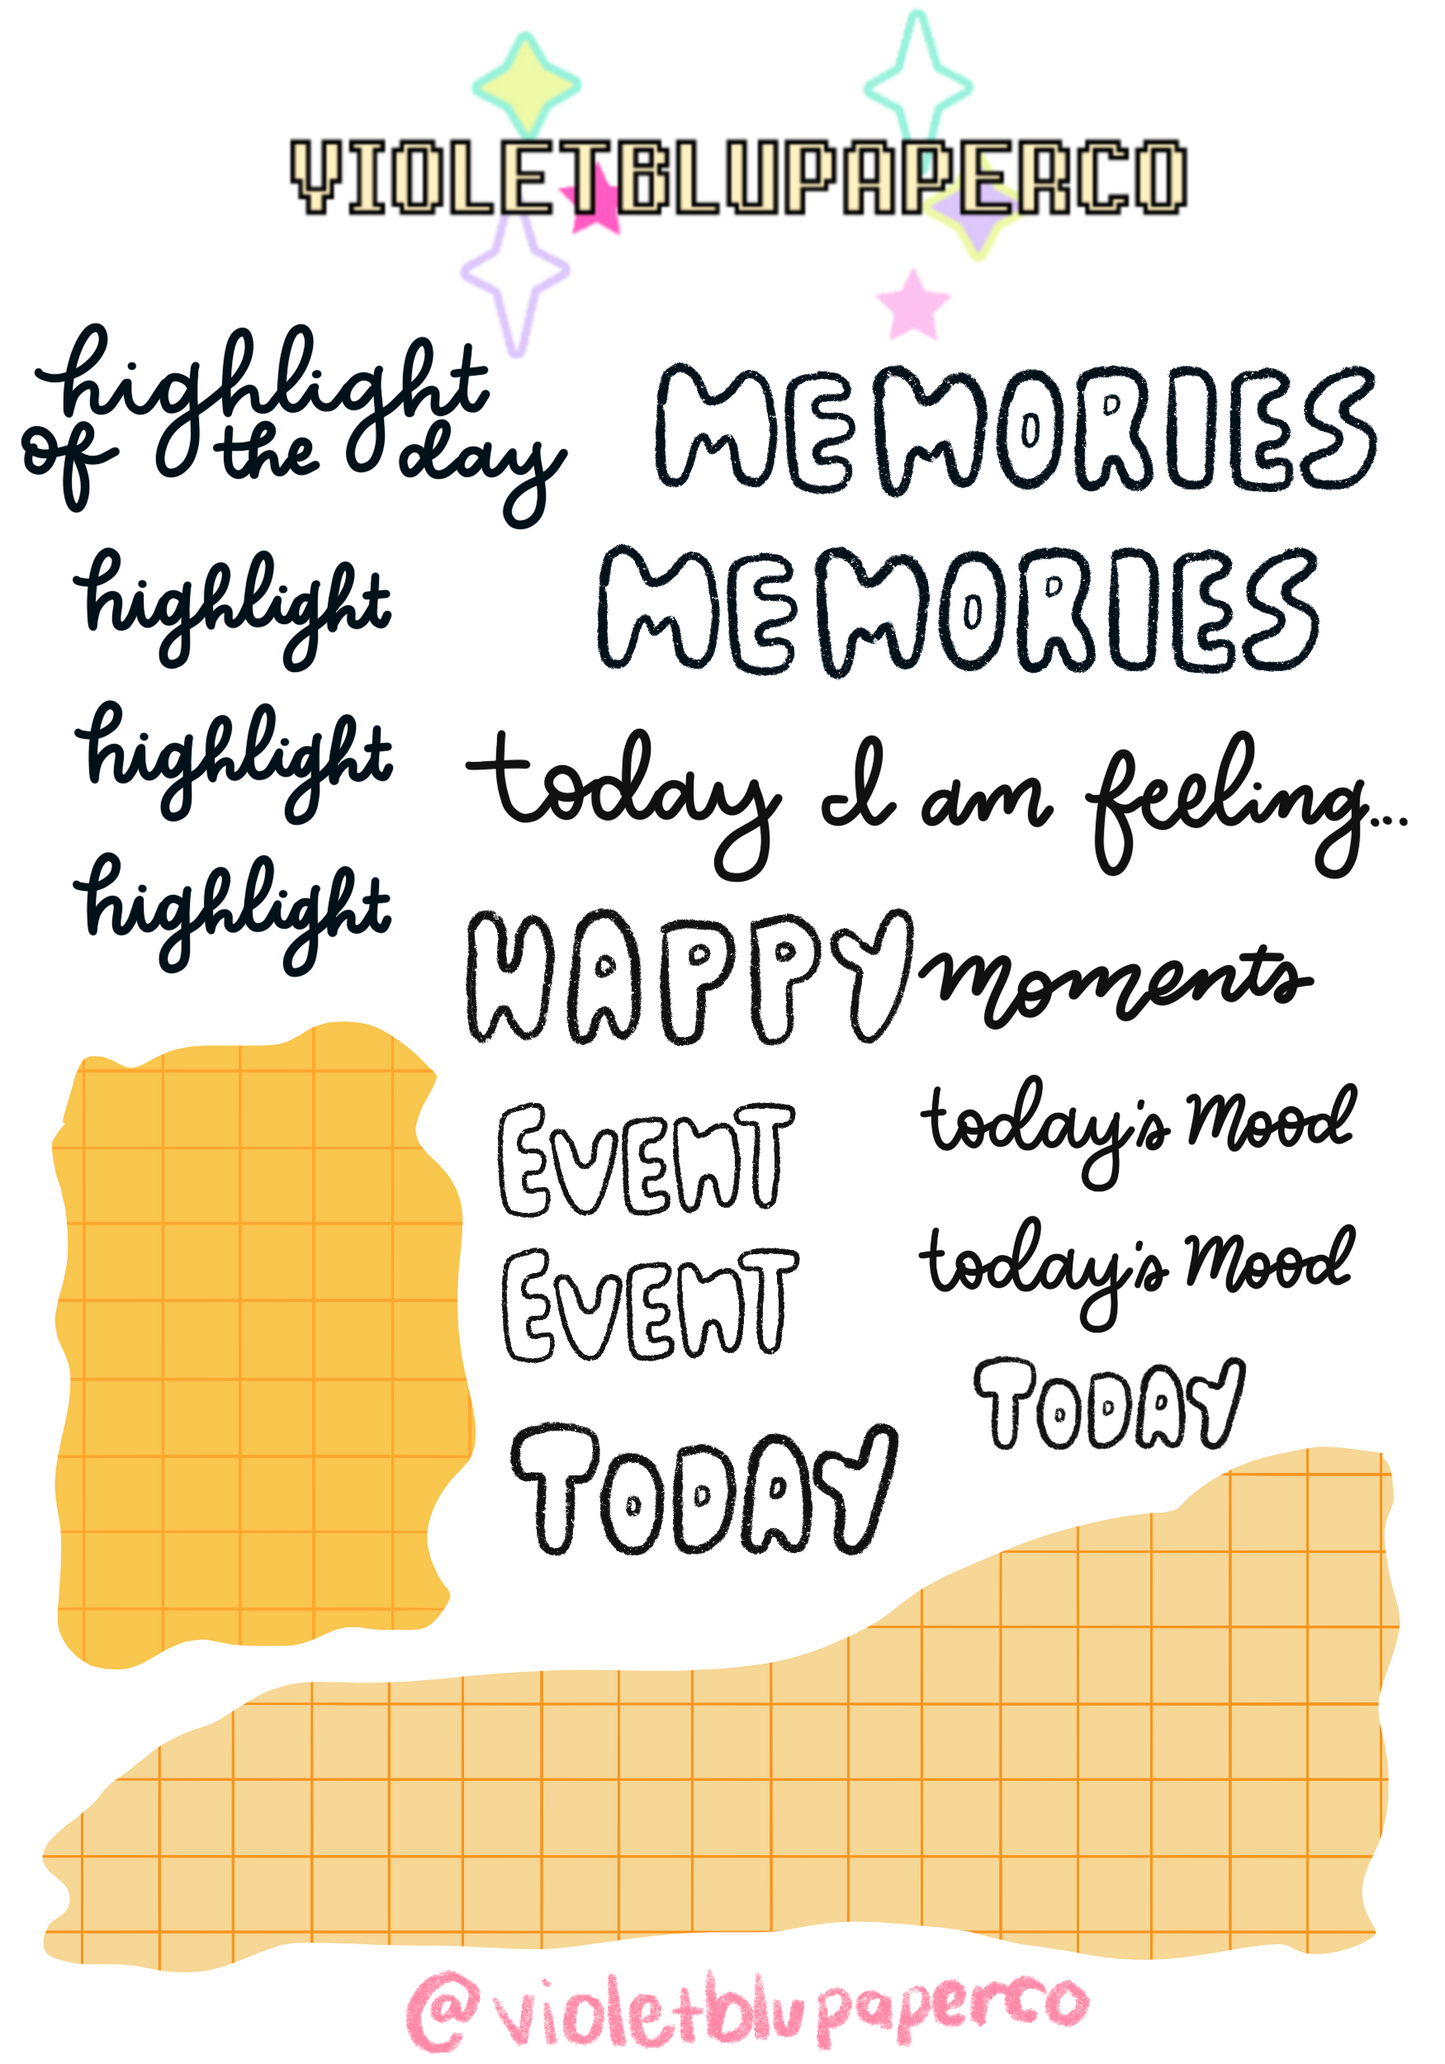 VIOLETBLUPAPERCO
highlight
of the day
MEMORIES
highlight
MEMORIES
highlight
today I am feeling...
highlight
HAPPY moments
EVENT
today's Mood
EVENT
today's Mood
TODAY
TODAY
@violetblupaperco